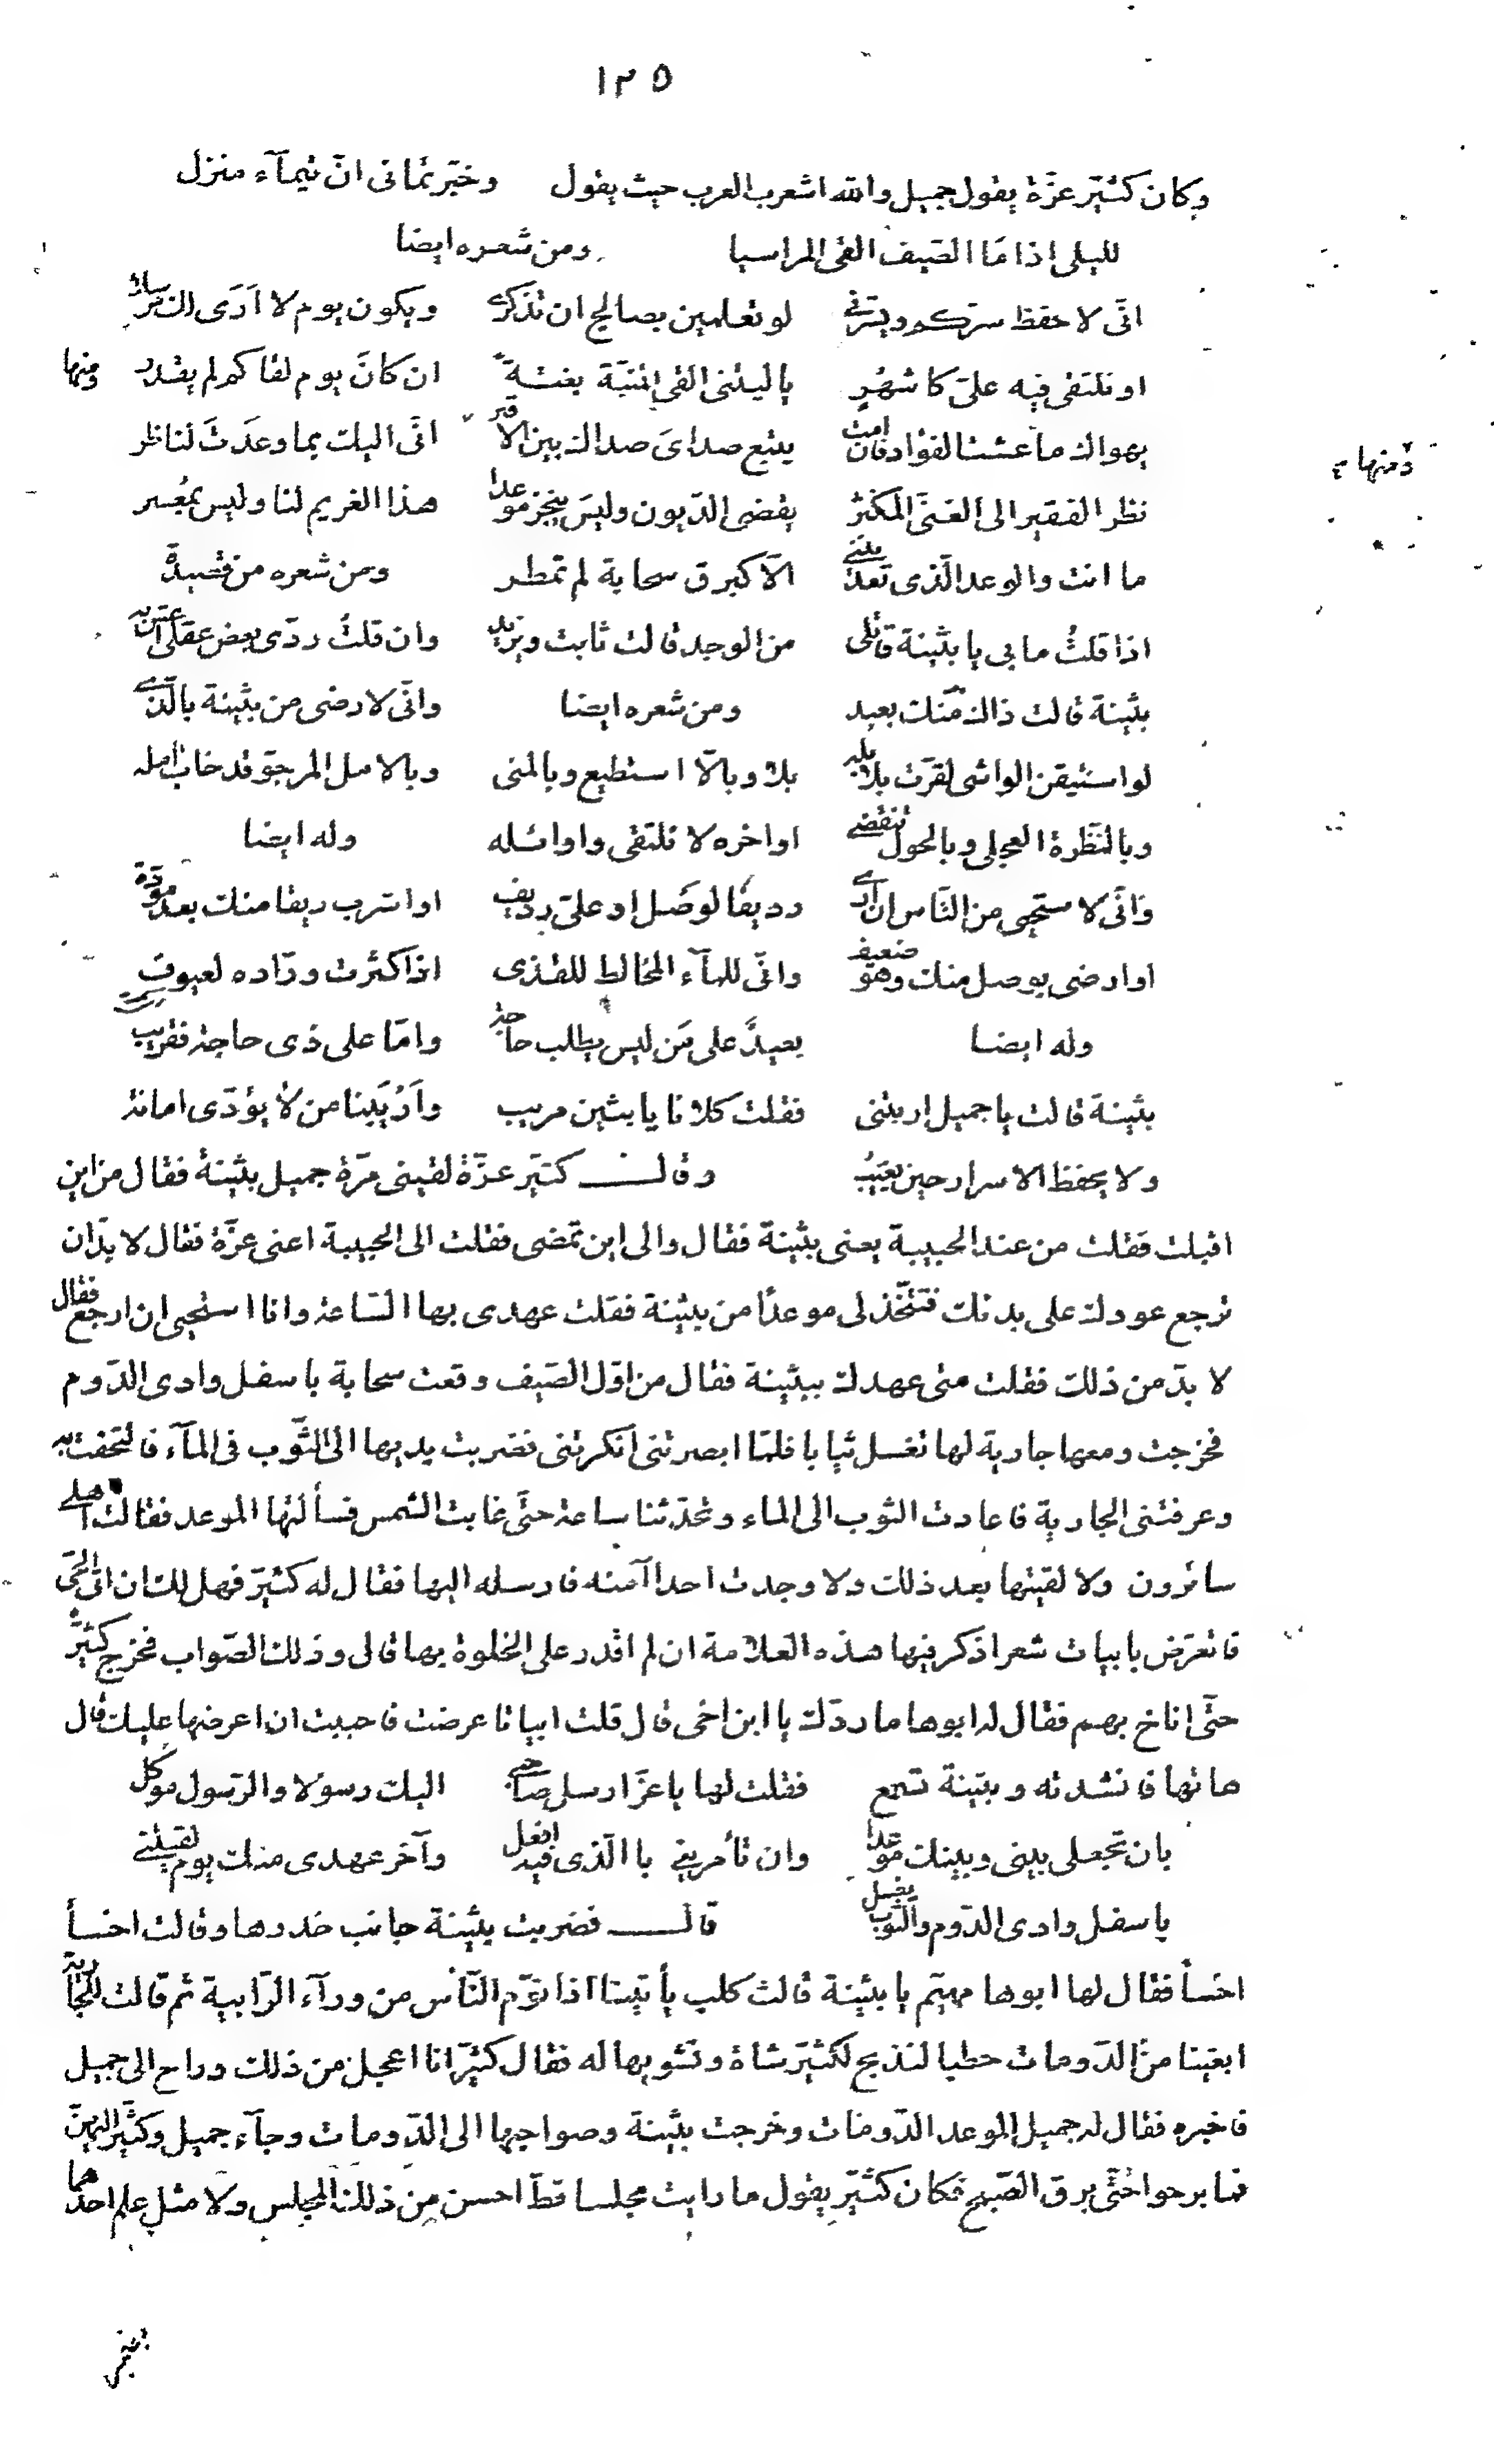 ١٢٥
وكان كثيّر عزّة يقول جميل والله اشعر العرب حيث يقول وخبّرتمانى انّ تيمآء منزل
لليلى اذا ما الصّيف القى المراسيا ومن شعره ايضا
انّى لاحفظ سرّكم ويسرّنى لو تعلمين بصالح ان تذكرى ويكون يوم لا ارَى لك مرسلا
او نلتقى فيه علىّ كاشهُرٍ ياليتنى القى المنيّة بغتةً ان كانَ يوم لقاكم لم يقدر ومنها
ومنها
يهواك ما عشت الفؤاد فان امت يتبع صداىَ صداك بين الاقبر انّى اليك بما وعَدتَ لناظر
نظر الفقير الى الغنىّ المكثر يقضى الدّيون وليسَ ينجز موعدا هذا الغريم لنا وليس بمُعسر
ما انت والوعد الّذى تعدينى الّا كبرق سحابة لم تمطر ومن شعره من قصيدةٍ
اذا قلتُ مابى يا بثينة قاتلى من الوجد قالت ثابت ويزيد وان قلتُ ردّى بعض عقلى اعش به
بثينة قالت ذاك منك بعيد ومن شعره ايضا وانّى لارضى من بثينة بالّذى
لو استيقن الواشى لقرّت بلابله بلا وبالّا استطيع وبالمنى وبالامل المرجوّ قد خاب امله
وبالنّظرة العجلى وبالحول تنقضى اواخره لا نلتقى واوائله وله ايضا
وَانّى لاستحيى من النّاس ان ارى رديفًا لوصل او علىّ رديف او اشرب ريقا منك بعد مودّة
او ارضى بوصل منك وهو ضعيف وانّى للمآء المخالط للقذى اذا كثرت ورّاده لعيوف
وله ايضا بعيدٌ على من ليس يطلب حاجة وامّا على ذى حاجة فقريب
بثينة قالت يا جميل اربتنى فقلت كلانا يا بثين مريب وَاَرْيَبنا من لا يؤدّى امانة
ولا يحفظ الاسرار حين يغيب وقالـــ كثيّر عزّة لقينى مرّة جميل بثينة فقال من اين
اقبلت فقلت من عند الحبيبة يعنى بثينة فقال والى اين تمضى فقلت الى الحبيبة اعنى عزّة فقال لا بدّ ان
ترجع عودك على بدئك فتتّخذ لى موعدًا من بثينة فقلت عهدى بها السّاعة وانا استحيى ان ارجع فقال
لا بدّ من ذلك فقلت متى عهدك ببثينة فقال من اوّل الصّيف وقعت سحابة باسفل وادى الدّوم
فخرجت ومعها جارية لها تغسل ثيابا فلمّا ابصرتنى انكرتنى فضربت يديها الى الثّوب فى المآء فالتحفت به
وعرفتنى الجارية فاعادت الثوب الى الماء وتحدّثنا ساعة حتّى غابت الشمس فسألتها الموعد فقالت اهلى
سائرون ولا لقيتها بعد ذلك ولا وجدت احدا آمنه فارسله اليها فقال له كثيّر فهل لك ان اتى الحىّ
فاتعرّض بابيات شعر اذكر فيها هذه العلامة ان لم اقدر على الخلوة بها قال وذلك الصّواب فخرج كثيّر
حتّى اناخ بهم فقال له ابوها ما ردّك يا ابن اخى قال قلت ابياتا عرضت فاحببت ان اعرضها عليك قال
هاتها فانشدته وبثينة تسمع فقلت لها يا عزّ ارسل صاحبى اليك رسولا والرّسول موكّل
بان تجعلى بينى وبينك موعدا وان تأمرينى باالّذى فيه افعل وآخر عهدى منك يوم لقيتنى
باسفل وادى الدّوم والثّوب يغسل قالـــ فضربت بثينة جانب خدرها وقالت اخسأ
اخسأ فقال لها ابوها مهيم يا بثينة قالت كلب يأتينا اذا نوّم النّاس من ورآء الرّابية ثم قالت للجارية
ابغينا من الدّومات حطبا لنذبح لكثيّر شاة ونشويها له فقال كثيّر انا اعجل من ذلك وراح الى جميل
فاخبره فقال له جميل الموعد الدّومات وخرجت بثينة وصواحبها الى الدّومات وجآء جميل وكثيّر اليهنّ
فما برحوا حتّى برق الصّبح فكان كثيّر يقول ما رايت مجلسا قطّ احسن من ذلك المجلس ولا مثل علم احدهما